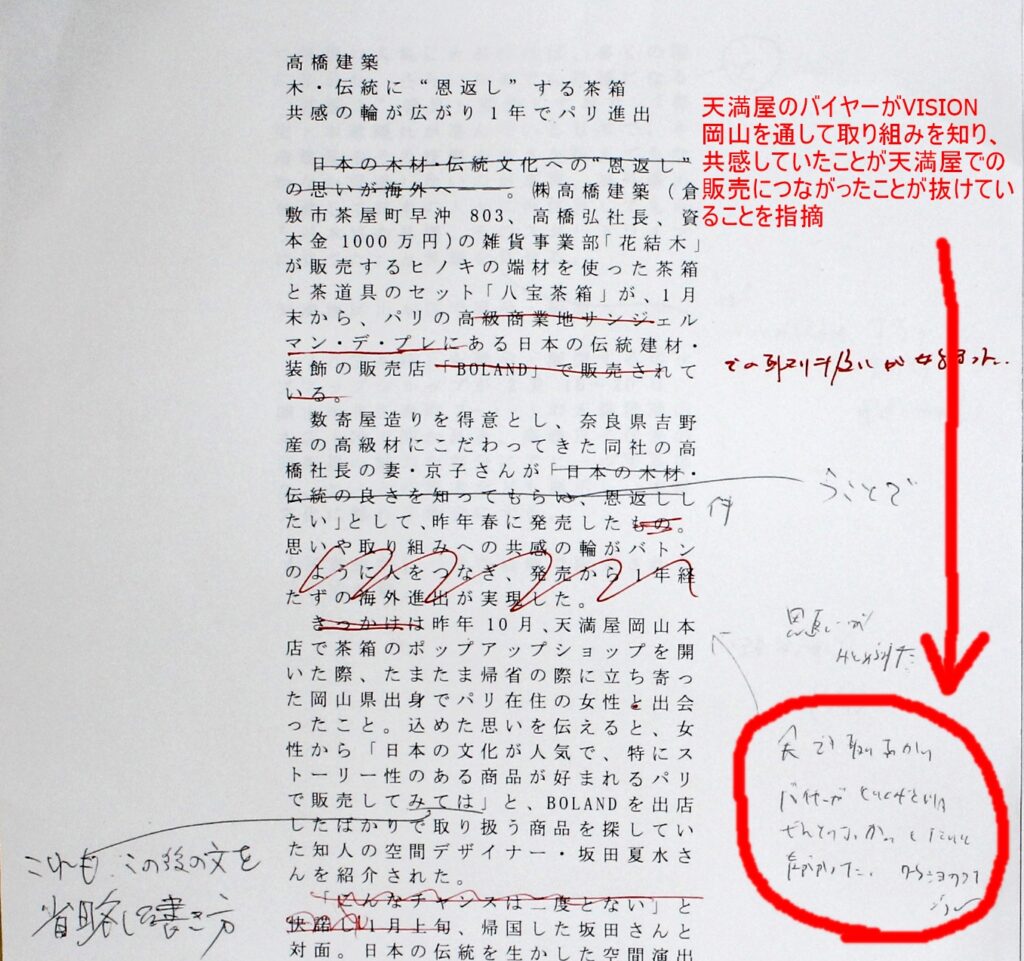 高橋建築
木・伝統に“恩返し”する茶箱
共感の輪が広がり1年でパリ進出
日本の木材・伝統文化への“恩返し”
の思いが海外へ――。㈱高橋建築(倉
敷市茶屋町早沖 803、高橋弘社長、資
本金1000万円)の雑貨事業部「花結木」
が販売するヒノキの端材を使った茶箱
と茶道具のセット「八宝茶箱」が、1月
末から、パリの高級商業地サンジェル
マン・デ・プレにある日本の伝統建材・
装飾の販売店「BOLAND」で販売されて
いる。
数寄屋造りを得意とし、奈良県吉野
産の高級材にこだわってきた同社の高
橋社長の妻・京子さんが「日本の木材・
伝統の良さを知ってもらい、恩返しし
たい」として、昨年春に発売したもの。
思いや取り組みへの共感の輪がバトン
のように人をつなぎ、発売から1年経
たずの海外進出が実現した。
きっかけは昨年10月、天満屋岡山本
店で茶箱のポップアップショップを開
いた際、たまたま帰省の際に立ち寄っ
た岡山県出身でパリ在住の女性と出会
ったこと。込めた思いを伝えると、女
性から「日本の文化が人気で、特にス
トーリー性のある商品が好まれるパリ
で販売してみては」と、BOLANDを出店
したばかりで取り扱う商品を探してい
た知人の空間デザイナー・坂田夏水さ
んを紹介された。
「こんなチャンスは二度とない」と
快諾し1月上旬、帰国した坂田さんと
対面。日本の伝統を生かした空間演出
天満屋のバイヤーがVISION
岡山を通して取り組みを知り、
共感していたことが天満屋での
販売につながったことが抜けてい
ることを指摘
うことで
件
これも この後の文を
省略した書き方